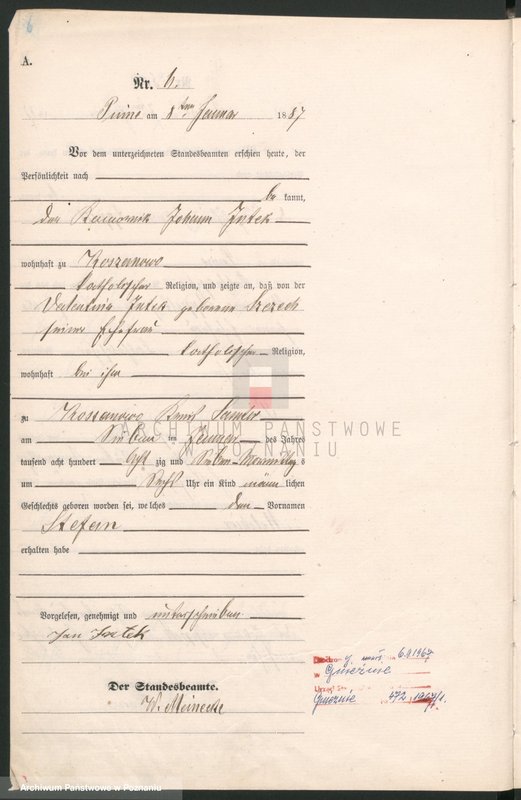 6
A.
Nr. 6.
Pinne am 8ten Januar 1887
Vor dem unterzeichneten Standesbeamten erschien heute, der
Persönlichkeit nach
be kannt,
der Johann Jutek
wohnhaft zu Koszanowo
katholischer Religion, und zeigte an, daß von der
Valentina Jutek geborene Szezech
seiner Ehefrau
katholischer Religion,
wohnhaft bei ihm
zu Koszanowo Kreis Samter
am Sieben ten Januar des Jahres
tausend acht hundert acht zig und Sieben Vormittag s
um Sechs Uhr ein Kind männ lichen
Geschlechts geboren worden sei, welches den Vornamen
Stefan
erhalten habe
Vorgelesen, genehmigt und unterschrieben
Jan
Der Standesbeamte.
W. Meinecke
ARCHIWUM PAŃSTWOWE
W POZNANIU
6.9.1967
w Gnieźnie
Gnieźnie 472 1967/1.
Archiwum Państwowe w Poznaniu